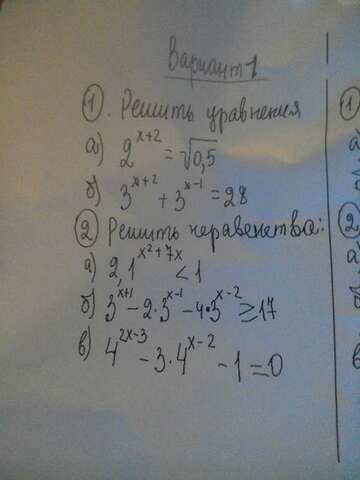 Вариант 1
① . Решить уравнения
а) 2^{x+2} = √0,5
б) 3^{x+2} + 3^{x-1} = 28
② Решить неравенства:
а) 2,1^{x²+7x} < 1
б) 3^{x+1} - 2·3^{x-1} - 4·3^{x-2} ≥ 17
в) 4^{2x-3} - 3·4^{x-2} - 1 = 0
①
а
②
а
в